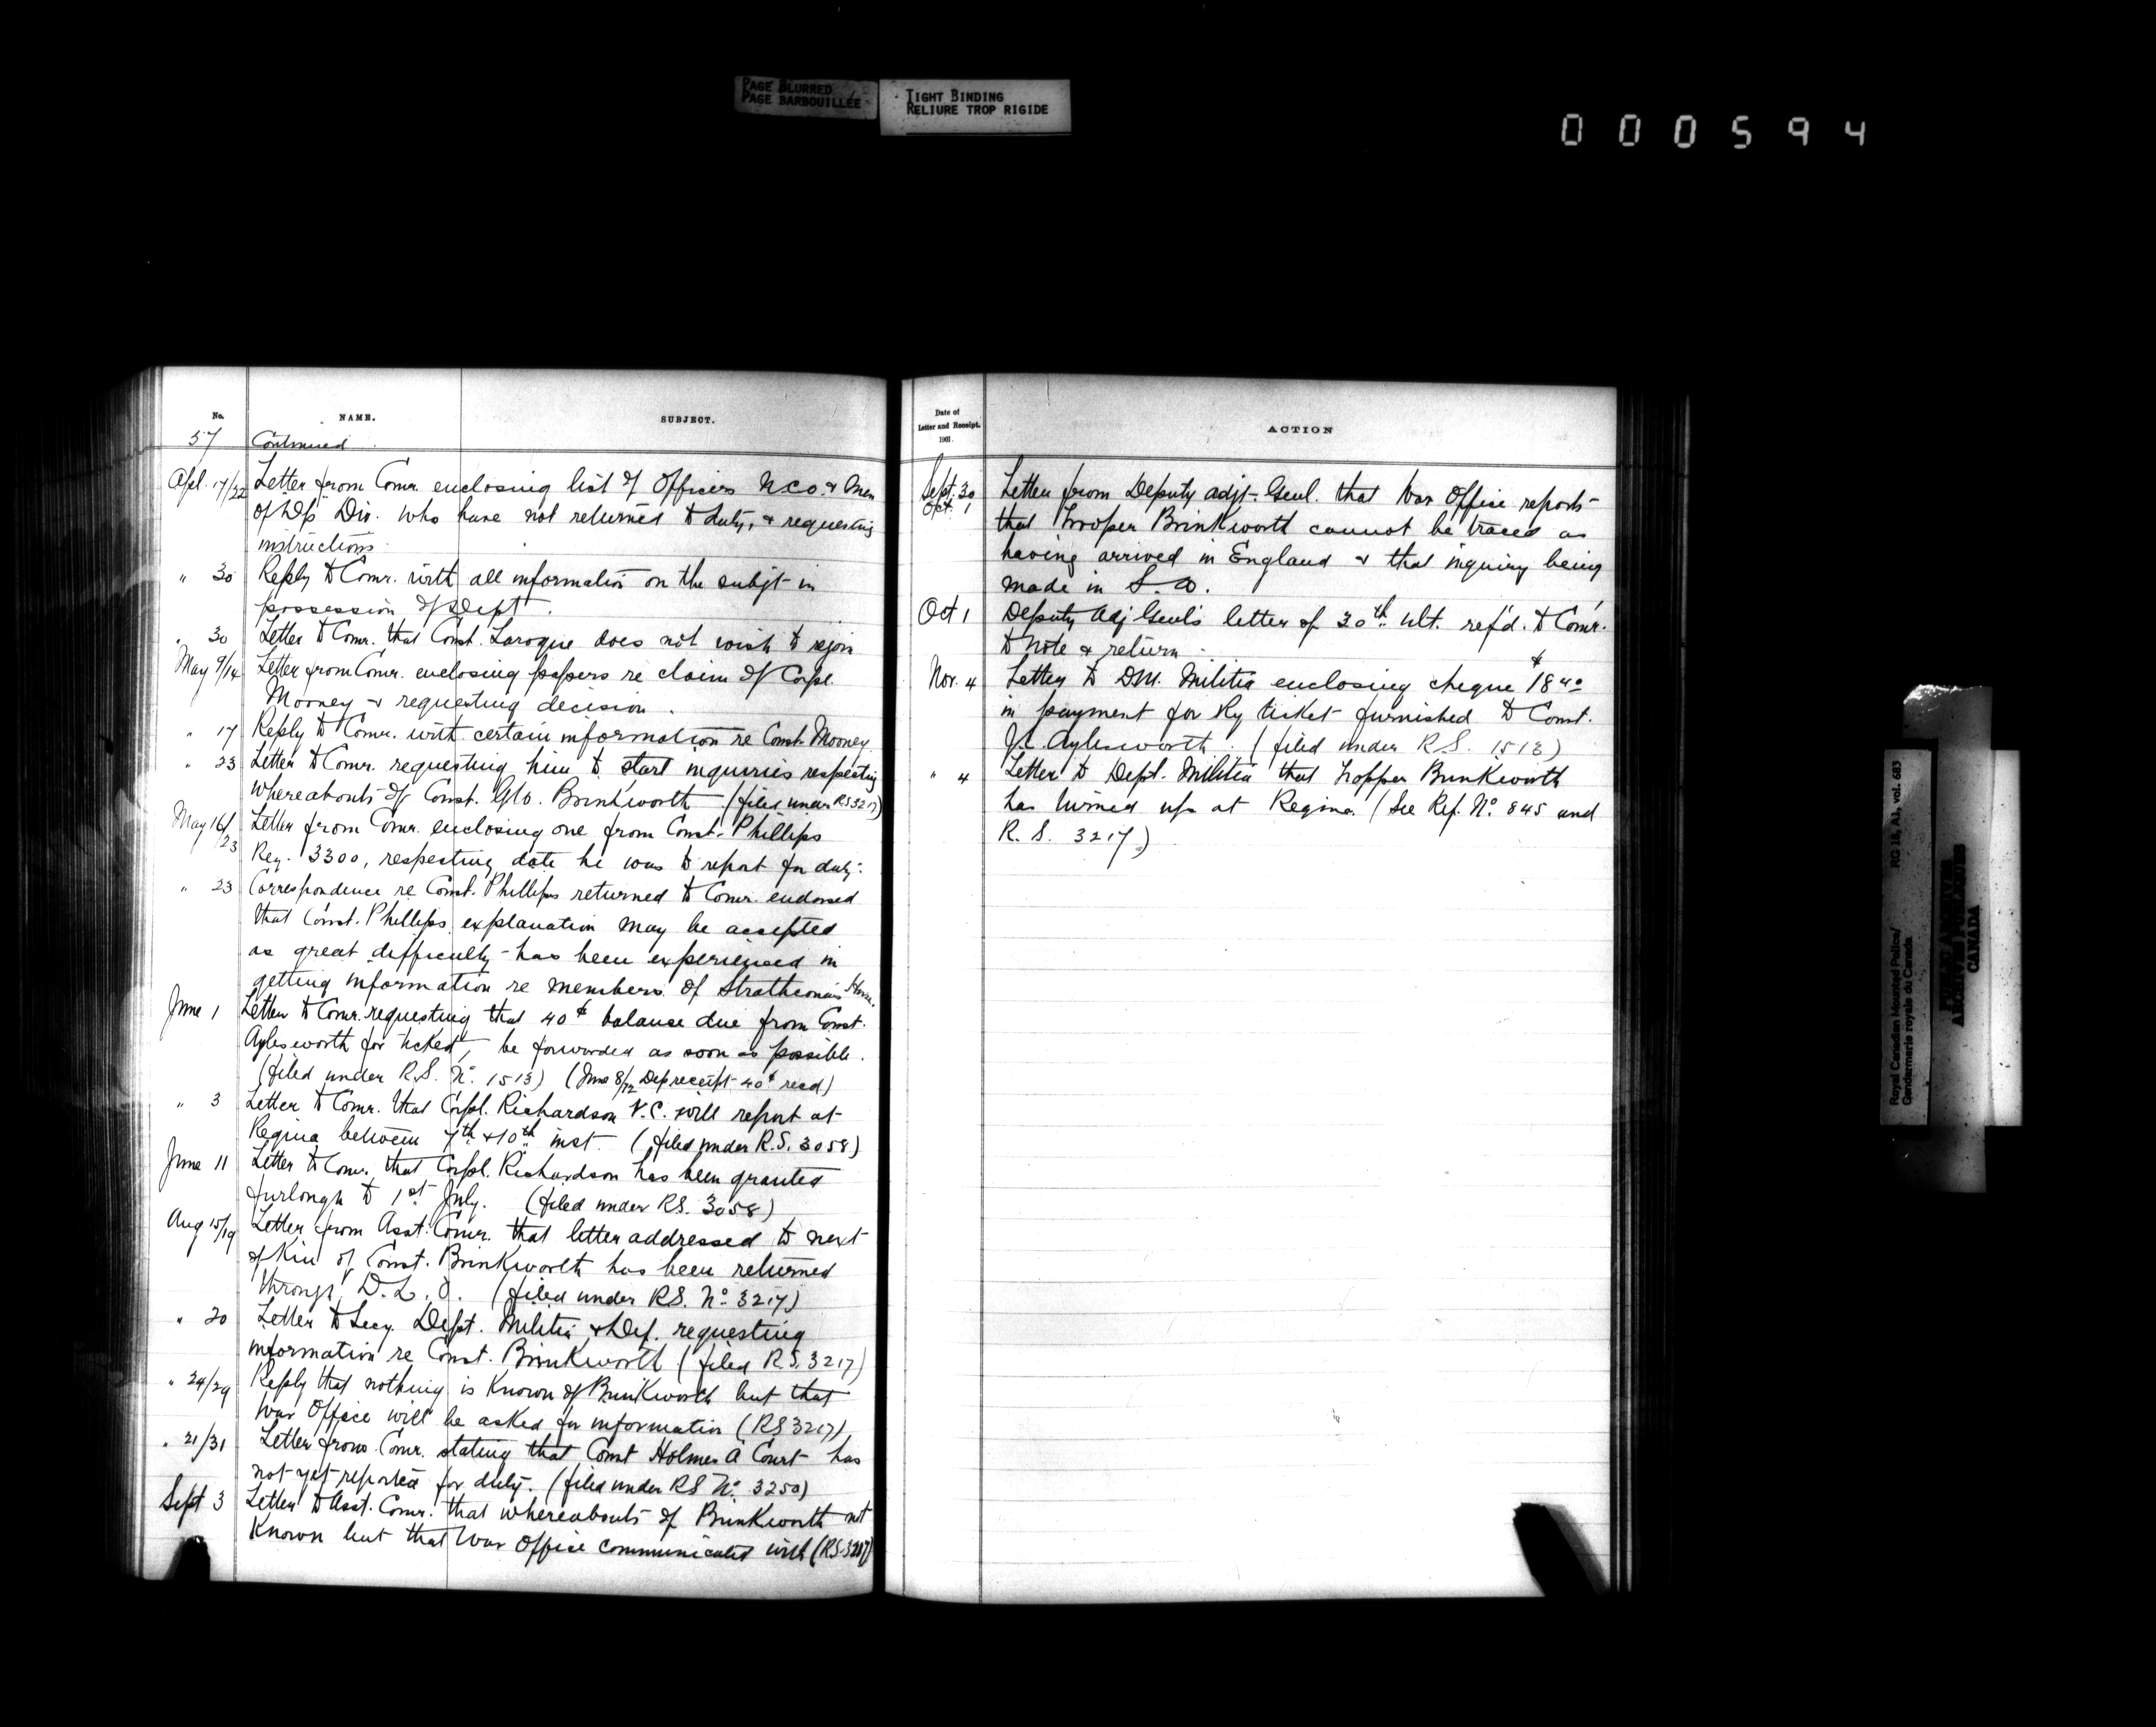 PAGE BLURRED
PAGE BARBOUILLÉE
TIGHT BINDING
RELIURE TROP RIGIDE
000594
No. NAME. SUBJECT.
57 Continued
Apl. 17/22 Letter from Comr. enclosing list of Officers N.C.O. & Men
of Div. who have not returned to duty, & requesting
instructions
" 30 Reply to Comr. with all information on the subjt in
possession of Dept.
" 30 Letter to Comr. that Const. Laroque does not wish to rejoin
May 9/14 Letter from Comr. enclosing papers re claim of Corpl.
Mooney & requesting decision.
" 17 Reply to Comr. with certain information re Const. Mooney
" 23 Letter to Comr. requesting him to start inquiries respecting
whereabouts of Const. Geo. Brinkworth (filed under RS 3217)
May 16/23 Letter from Comr. enclosing one from Const. Phillips
Reg. 3300, respecting date he was to report for duty.
" 23 Correspondence re Const. Phillips returned to Comr. endorsed
that Const. Phillips explanation may be accepted
as great difficulty has been experienced in
getting information re members of Strathcona's Horse.
June 1 Letter to Comr. requesting that 40¢ balance due from Const.
Aylesworth for ticket, be forwarded as soon as possible.
(filed under R.S. No. 1513) (June 8/12 Dep receipt 40¢ recd)
" 3 Letter to Comr. that Corpl. Richardson V.C. will report at
Regina between 7th & 10th inst. (filed under R.S. 3058)
June 11 Letter to Comr. that Corpl. Richardson has been granted
furlough to 1st July. (filed under RS. 3058)
Aug 15/19 Letter from Asst. Comr. that letter addressed to next
of Kin of Const. Brinkworth has been returned
through D.L.O. (filed under RS. No. 3217)
" 20 Letter to Secy. Dept. Militia & Def. requesting
information re Const. Brinkworth (filed R.S. 3217)
" 24/29 Reply that nothing is known of Brinkworth but that
War Office will be asked for information (RS 3217)
" 21/31 Letter from Comr. stating that Const Holmes A Court has
not yet reported for duty. (filed under RS No. 3250)
Sept 3 Letter to Asst. Comr. that whereabouts of Brinkworth not
Known but that War Office communicated with (RS. 3217)
Date of
Letter and Receipt.
1901.
ACTION
Sept. 30
Oct. 1
Letter from Deputy Adjt. Genl. that War Office reports
that Trooper Brinkworth cannot be traced as
having arrived in England & that inquiry being
made in S.A.
Oct 1 Deputy Adj Genl's letter of 30th ult. ref'd. to Comr.
to note & return.
Nov. 4 Letter to D.M. Militia enclosing cheque $18 40
in payment for Ry ticket furnished to Const.
J.C. Aylesworth. (filed under R.S. 1513)
" 4 Letter to Dept. Militia that Trooper Brinkworth
has turned up at Regina. (See Ref. No. 845 and
R.S. 3217)
Royal Canadian Mounted Police/ RG 18, A1, vol. 683
Gendarmerie royale du Canada
PUBLIC ARCHIVES
ARCHIVES PUBLIQUES
CANADA